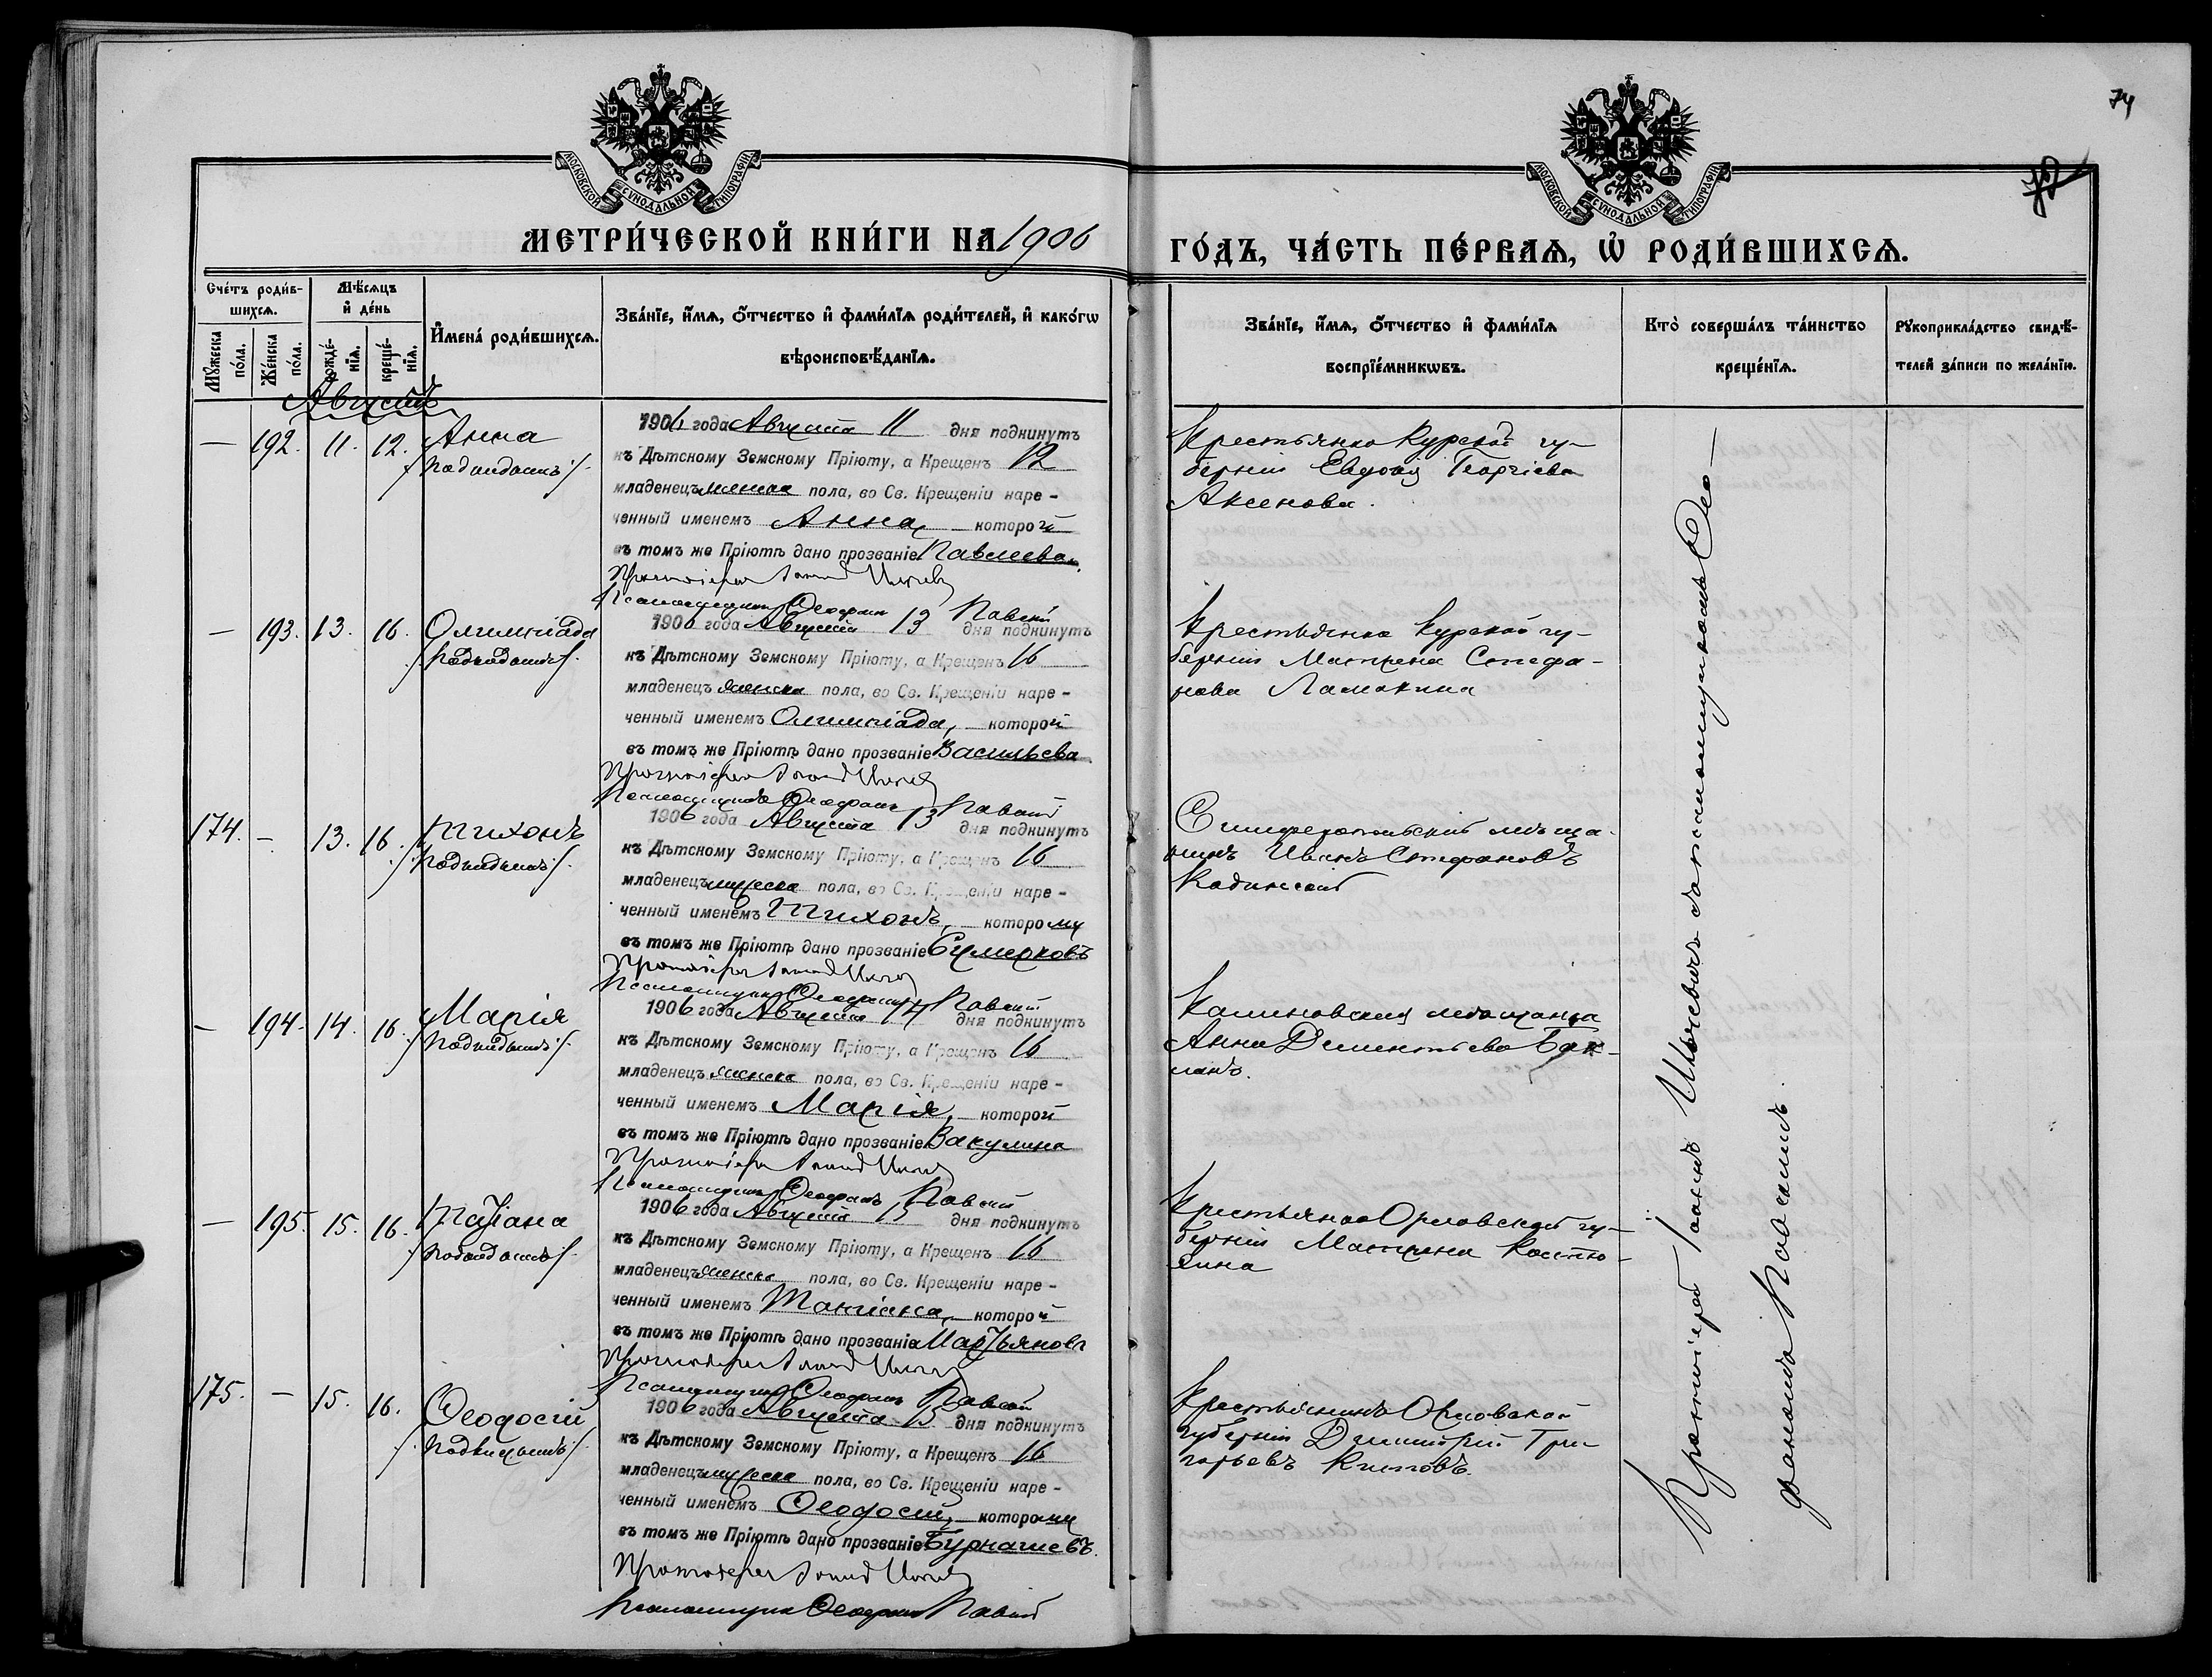 74
МОСКОВСКОЙ СѴНОДАЛЬНОЙ ТИПОГРАФІИ
МОСКОВСКОЙ СѴНОДАЛЬНОЙ ТИПОГРАФІИ
МЕТРИ́ЧЕСКОЙ КНИ́ГИ НА 1906
ГО́ДЪ, ЧА́СТЬ ПЕ́РВАѦ, Ѡ҆ РОДИ́ВШИХСѦ.
Сче́тъ роди́в-
шихсѧ.
Мꙋ́жеска по́ла.
Же́нска по́ла.
Мѣ́сѧцъ
и҆ де́нь
рожде́-
нїѧ.
креще́-
нїѧ.
И҆мена̀ роди́вшихсѧ.
Зва́нїе, и҆́мѧ, ѻ҆́тчество и҆ фами́лїѧ роди́телей, и҆ како́гѡ
вѣроисповѣ́данїѧ.
Зва́нїе, и҆́мѧ, ѻ҆́тчество и҆ фами́лїѧ
воспрїе́мникѡвъ.
Кто̀ соверша́лъ та́инство
креще́нїѧ.
Рꙋкоприкла́дство свидѣ́-
телей за́писи по жела́нїю.
Августъ
— 192. 11. 12. Анна
/Подкидышъ/.
1906 года Августа 11 дня подкинутъ
къ Дѣтскому Земскому Пріюту, а Крещенъ 12
младенецъ женска пола, во Св. Крещеніи наре-
ченный именемъ Анна, которой
въ томъ же Пріютѣ дано прозваніе Павлеева.
Протоіерей
Псаломщикъ Ѳеофанъ Павскій
Крестьянка Курской гу-
берніи Евдокія Георгіева
Аксенова.
— 193. 13. 16. Олимпіада
/Подкидышъ/.
1906 года Августа 13 дня подкинутъ
къ Дѣтскому Земскому Пріюту, а Крещенъ 16
младенецъ женска пола, во Св. Крещеніи наре-
ченный именемъ Олимпіада, которой
въ томъ же Пріютѣ дано прозваніе Васильева
Протоіерей
Псаломщикъ Ѳеофанъ Павскій
Крестьянка Курской гу-
берніи Матрена Стефа-
нова Ламакина
174. — 13. 16. Тихонъ
/Подкидышъ/.
1906 года Августа 13 дня подкинутъ
къ Дѣтскому Земскому Пріюту, а Крещенъ 16
младенецъ мужеска пола, во Св. Крещеніи наре-
ченный именемъ Тихонъ, которому
въ томъ же Пріютѣ дано прозваніе Сумерковъ
Протоіерей
Псаломщикъ Ѳеофанъ Павскій
Симферопольскій мѣща-
нинъ Иванъ Стефановъ
Кадинскій
— 194. 14. 16. Марія
/Подкидышъ/.
1906 года Августа 14 дня подкинутъ
къ Дѣтскому Земскому Пріюту, а Крещенъ 16
младенецъ женска пола, во Св. Крещеніи наре-
ченный именемъ Марія, которой
въ томъ же Пріютѣ дано прозваніе Вакулина
Протоіерей
Псаломщикъ Ѳеофанъ Павскій
мѣщанка
Анна Дементьева Бак-
ланъ.
— 195. 15. 16. Татіана
/Подкидышъ/.
1906 года Августа 15 дня подкинутъ
къ Дѣтскому Земскому Пріюту, а Крещенъ 16
младенецъ женска пола, во Св. Крещеніи наре-
ченный именемъ Татіана, которой
въ томъ же Пріютѣ дано прозваніе Мартьянова
Протоіерей
Псаломщикъ Ѳеофанъ Павскій
Крестьянка Орловской гу-
берніи Матрена Костю-
хина
175. — 15. 16. Ѳеодосій
/Подкидышъ/.
1906 года Августа 15 дня подкинутъ
къ Дѣтскому Земскому Пріюту, а Крещенъ 16
младенецъ мужеска пола, во Св. Крещеніи наре-
ченный именемъ Ѳеодосій, которому
въ томъ же Пріютѣ дано прозваніе Бурначевъ.
Протоіерей
Псаломщикъ Ѳеофанъ Павскій
Крестьянинъ Орловской
губерніи Димитрій Гри-
горьевъ Китовъ.
Протоіерей Іоаннъ съ псаломщикомъ Ѳео-
фаномъ Павскимъ.